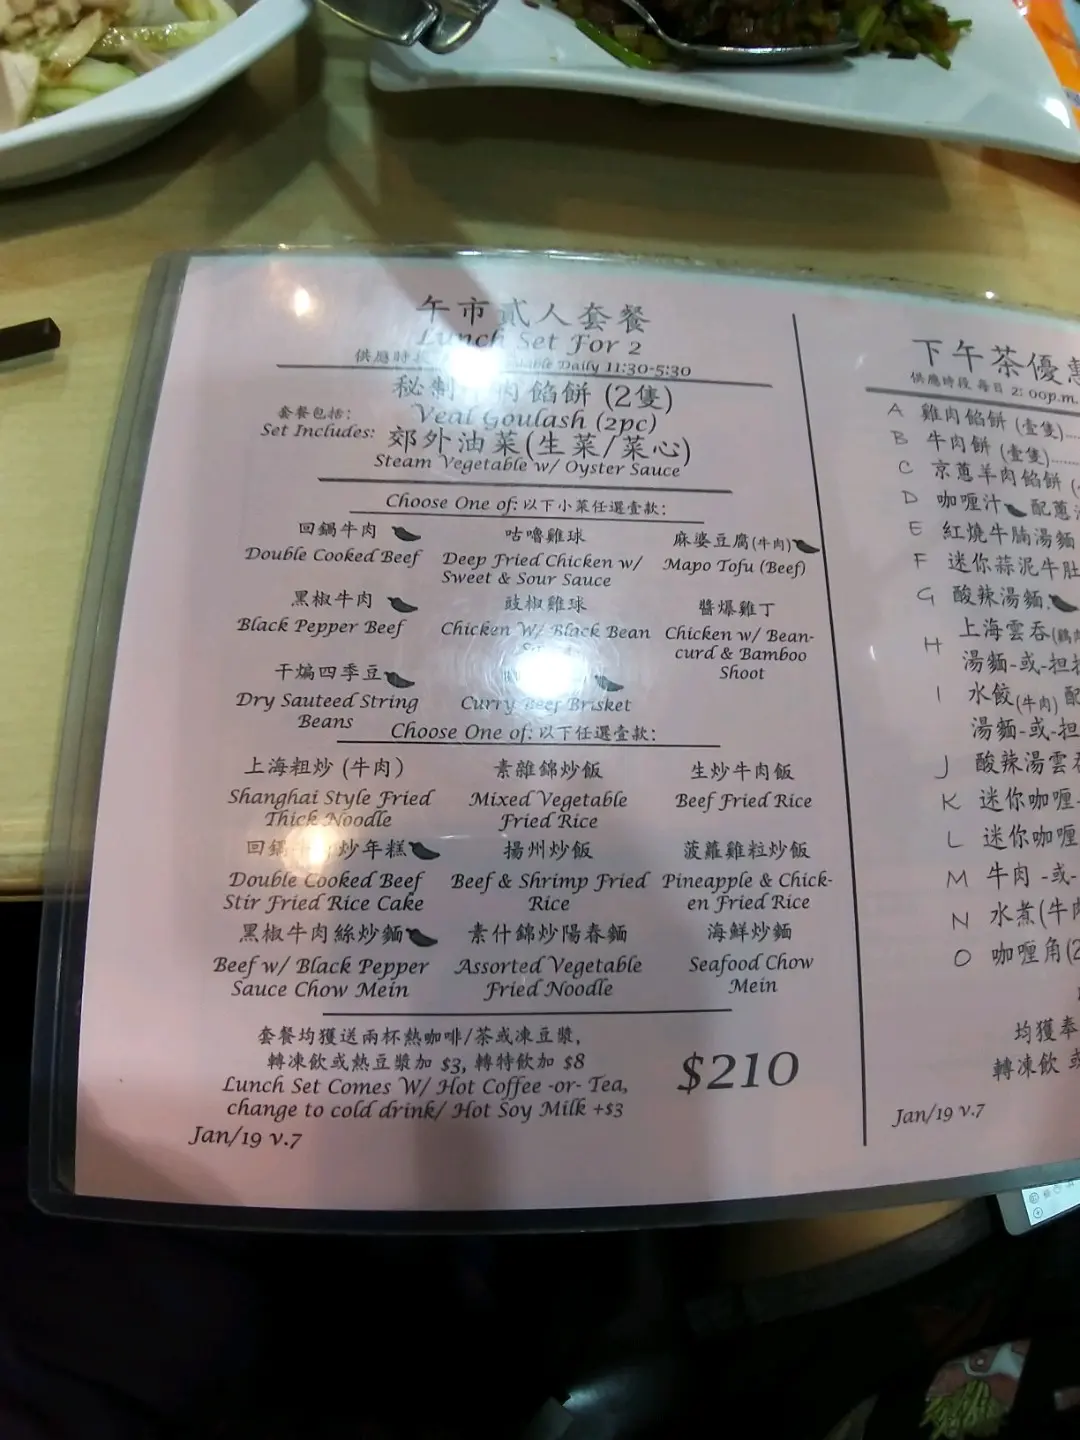 午市貳人套餐
Lunch Set For 2
供應時段 Daily 11:30-5:30
秘制 肉餡餅 (2隻)
Veal Goulash (2pc)
套餐包括:
Set Includes:
郊外油菜(生菜/菜心)
Steam Vegetable w/ Oyster Sauce
Choose One of: 以下小菜任選壹款:
回鍋牛肉 咕嚕雞球 麻婆豆腐(牛肉)
Double Cooked Beef Deep Fried Chicken w/ Mapo Tofu (Beef)
Sweet & Sour Sauce
黑椒牛肉 豉椒雞球 醬爆雞丁
Black Pepper Beef Chicken W/ Black Bean Chicken w/ Bean-
curd & Bamboo
Shoot
干煸四季豆
Dry Sauteed String Curry Beef Brisket
Beans
Choose One of: 以下任選壹款:
上海粗炒 (牛肉) 素雜錦炒飯 生炒牛肉飯
Shanghai Style Fried Mixed Vegetable Beef Fried Rice
Thick Noodle Fried Rice
回鍋 炒年糕 揚州炒飯 菠蘿雞粒炒飯
Double Cooked Beef Beef & Shrimp Fried Pineapple & Chick-
Stir Fried Rice Cake Rice en Fried Rice
黑椒牛肉絲炒麵 素什錦炒陽春麵 海鮮炒麵
Beef w/ Black Pepper Assorted Vegetable Seafood Chow
Sauce Chow Mein Fried Noodle Mein
套餐均獲送兩杯熱咖啡/茶或凍豆漿,
轉凍飲或熱豆漿加 $3, 轉特飲加 $8
Lunch Set Comes W/ Hot Coffee -or- Tea,
change to cold drink/ Hot Soy Milk +$3
$210
Jan/19 v.7
下午茶優惠
供應時段 每日 2:00p.m.
A 雞肉餡餅 (壹隻)
B 牛肉餅 (壹隻)
C 京蔥羊肉餡餅
D 咖喱汁 配蔥
E 紅燒牛腩湯麵
F 迷你蒜泥牛肚
G 酸辣湯麵
H 上海雲吞(鷄肉
湯麵-或-担
I 水餃(牛肉) 配
湯麵-或-担
J 酸辣湯雲吞
K 迷你咖喱
L 迷你咖喱
M 牛肉 -或-
N 水煮(牛肉
O 咖喱角(2
均獲奉
轉凍飲 或
Jan/19 v.7